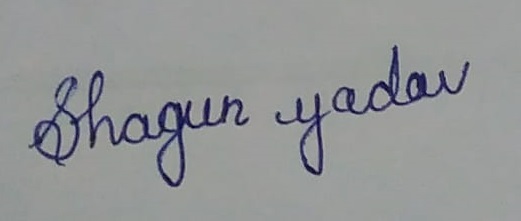 Shagun yadav